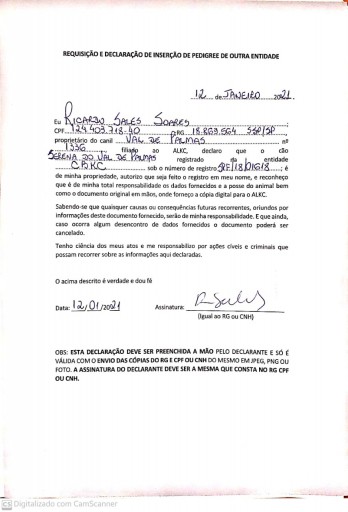 REQUISIÇÃO E DECLARAÇÃO DE INSERÇÃO DE PEDIGREE DE OUTRA ENTIDADE
12 de JANEIRO 2021
Eu RICARDO SALES SOARES
CPF 124.403.718-40 RG 18.869.564 SSP/SP
proprietário do canil VAL DE PALMAS nº
1336 filiado ao ALKC, declaro que o cão
SERENA DO VAL DE PALMAS registrado da entidade
CBKC sob o número de registro ; é
de minha propriedade, autorizo que seja feito o registro em meu nome, e reconheço
que é de minha total responsabilidade os dados fornecidos e a posse do animal bem
como o documento original em mãos, onde forneço a cópia digital para o ALKC.
Sabendo-se que quaisquer causas ou consequências futuras recorrentes, oriundos por
informações deste documento fornecido, serão de minha responsabilidade. E que ainda,
caso ocorra algum desencontro de dados fornecidos o documento poderá ser
cancelado.
Tenho ciência dos meus atos e me responsabilizo por ações cíveis e criminais que
possam recorrer sobre as informações aqui declaradas.
O acima descrito é verdade e dou fé
Data: 12/01/2021 Assinatura:
(Igual ao RG ou CNH)
OBS: ESTA DECLARAÇÃO DEVE SER PREENCHIDA A MÃO PELO DECLARANTE E SÓ É
VÁLIDA COM O ENVIO DAS CÓPIAS DO RG E CPF OU CNH DO MESMO EM JPEG, PNG OU
FOTO. A ASSINATURA DO DECLARANTE DEVE SER A MESMA QUE CONSTA NO RG CPF
OU CNH.
CS Digitalizado com CamScanner